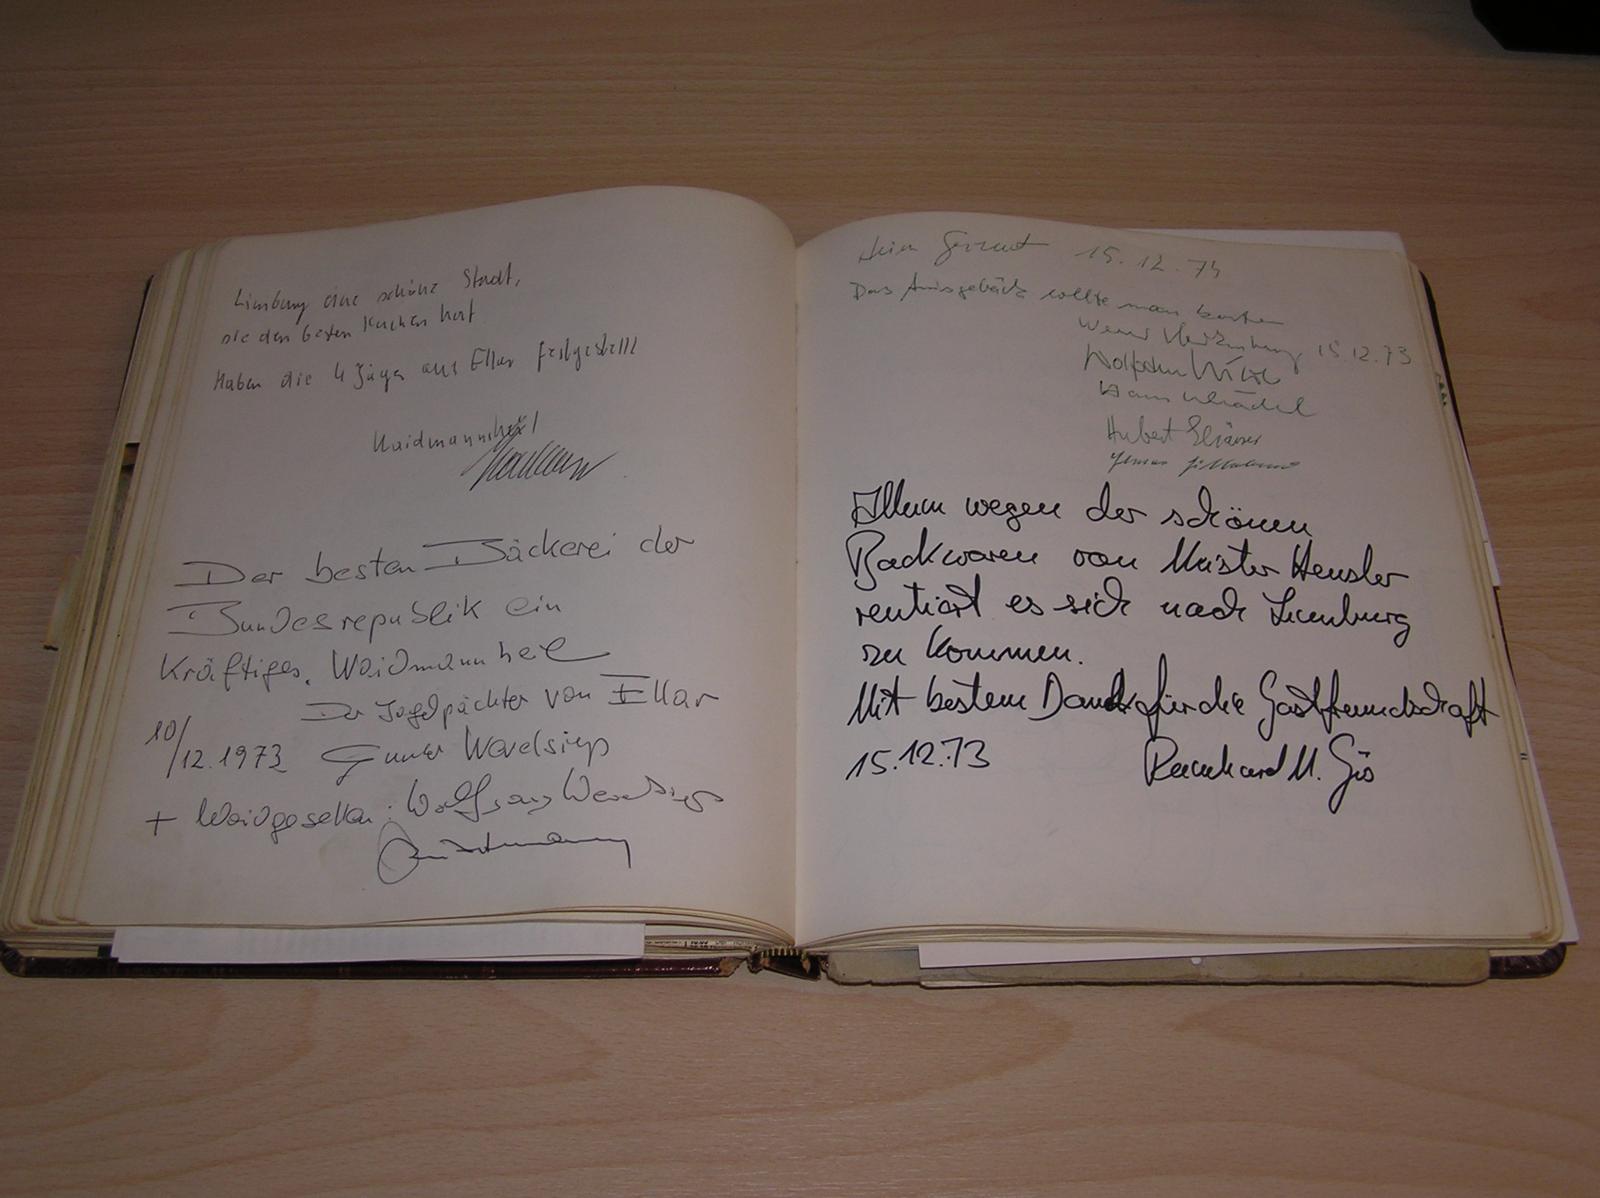 Limburg eine schöne Stadt,
die den besten Kuchen hat
Haben die 4 Jäger aus Ellar festgestellt
Waidmannsheil
Der besten Bäckerei der
Bundesrepublik ein
kräftiges. Waidmannheil
Der Jagdpächter von Ellar
10/12.1973
+ Waidgesellen: Wolfgang
15.12.74
Das Anisgebäck sollte man kosten
15.12.73
Hans
Hubert
Allein wegen der schönen
Backwaren von Meister Hensler
rentiert es sich nach Limburg
zu kommen.
Mit bestem Dank für die Gastfreundschaft
15.12.73 Reinhard M.